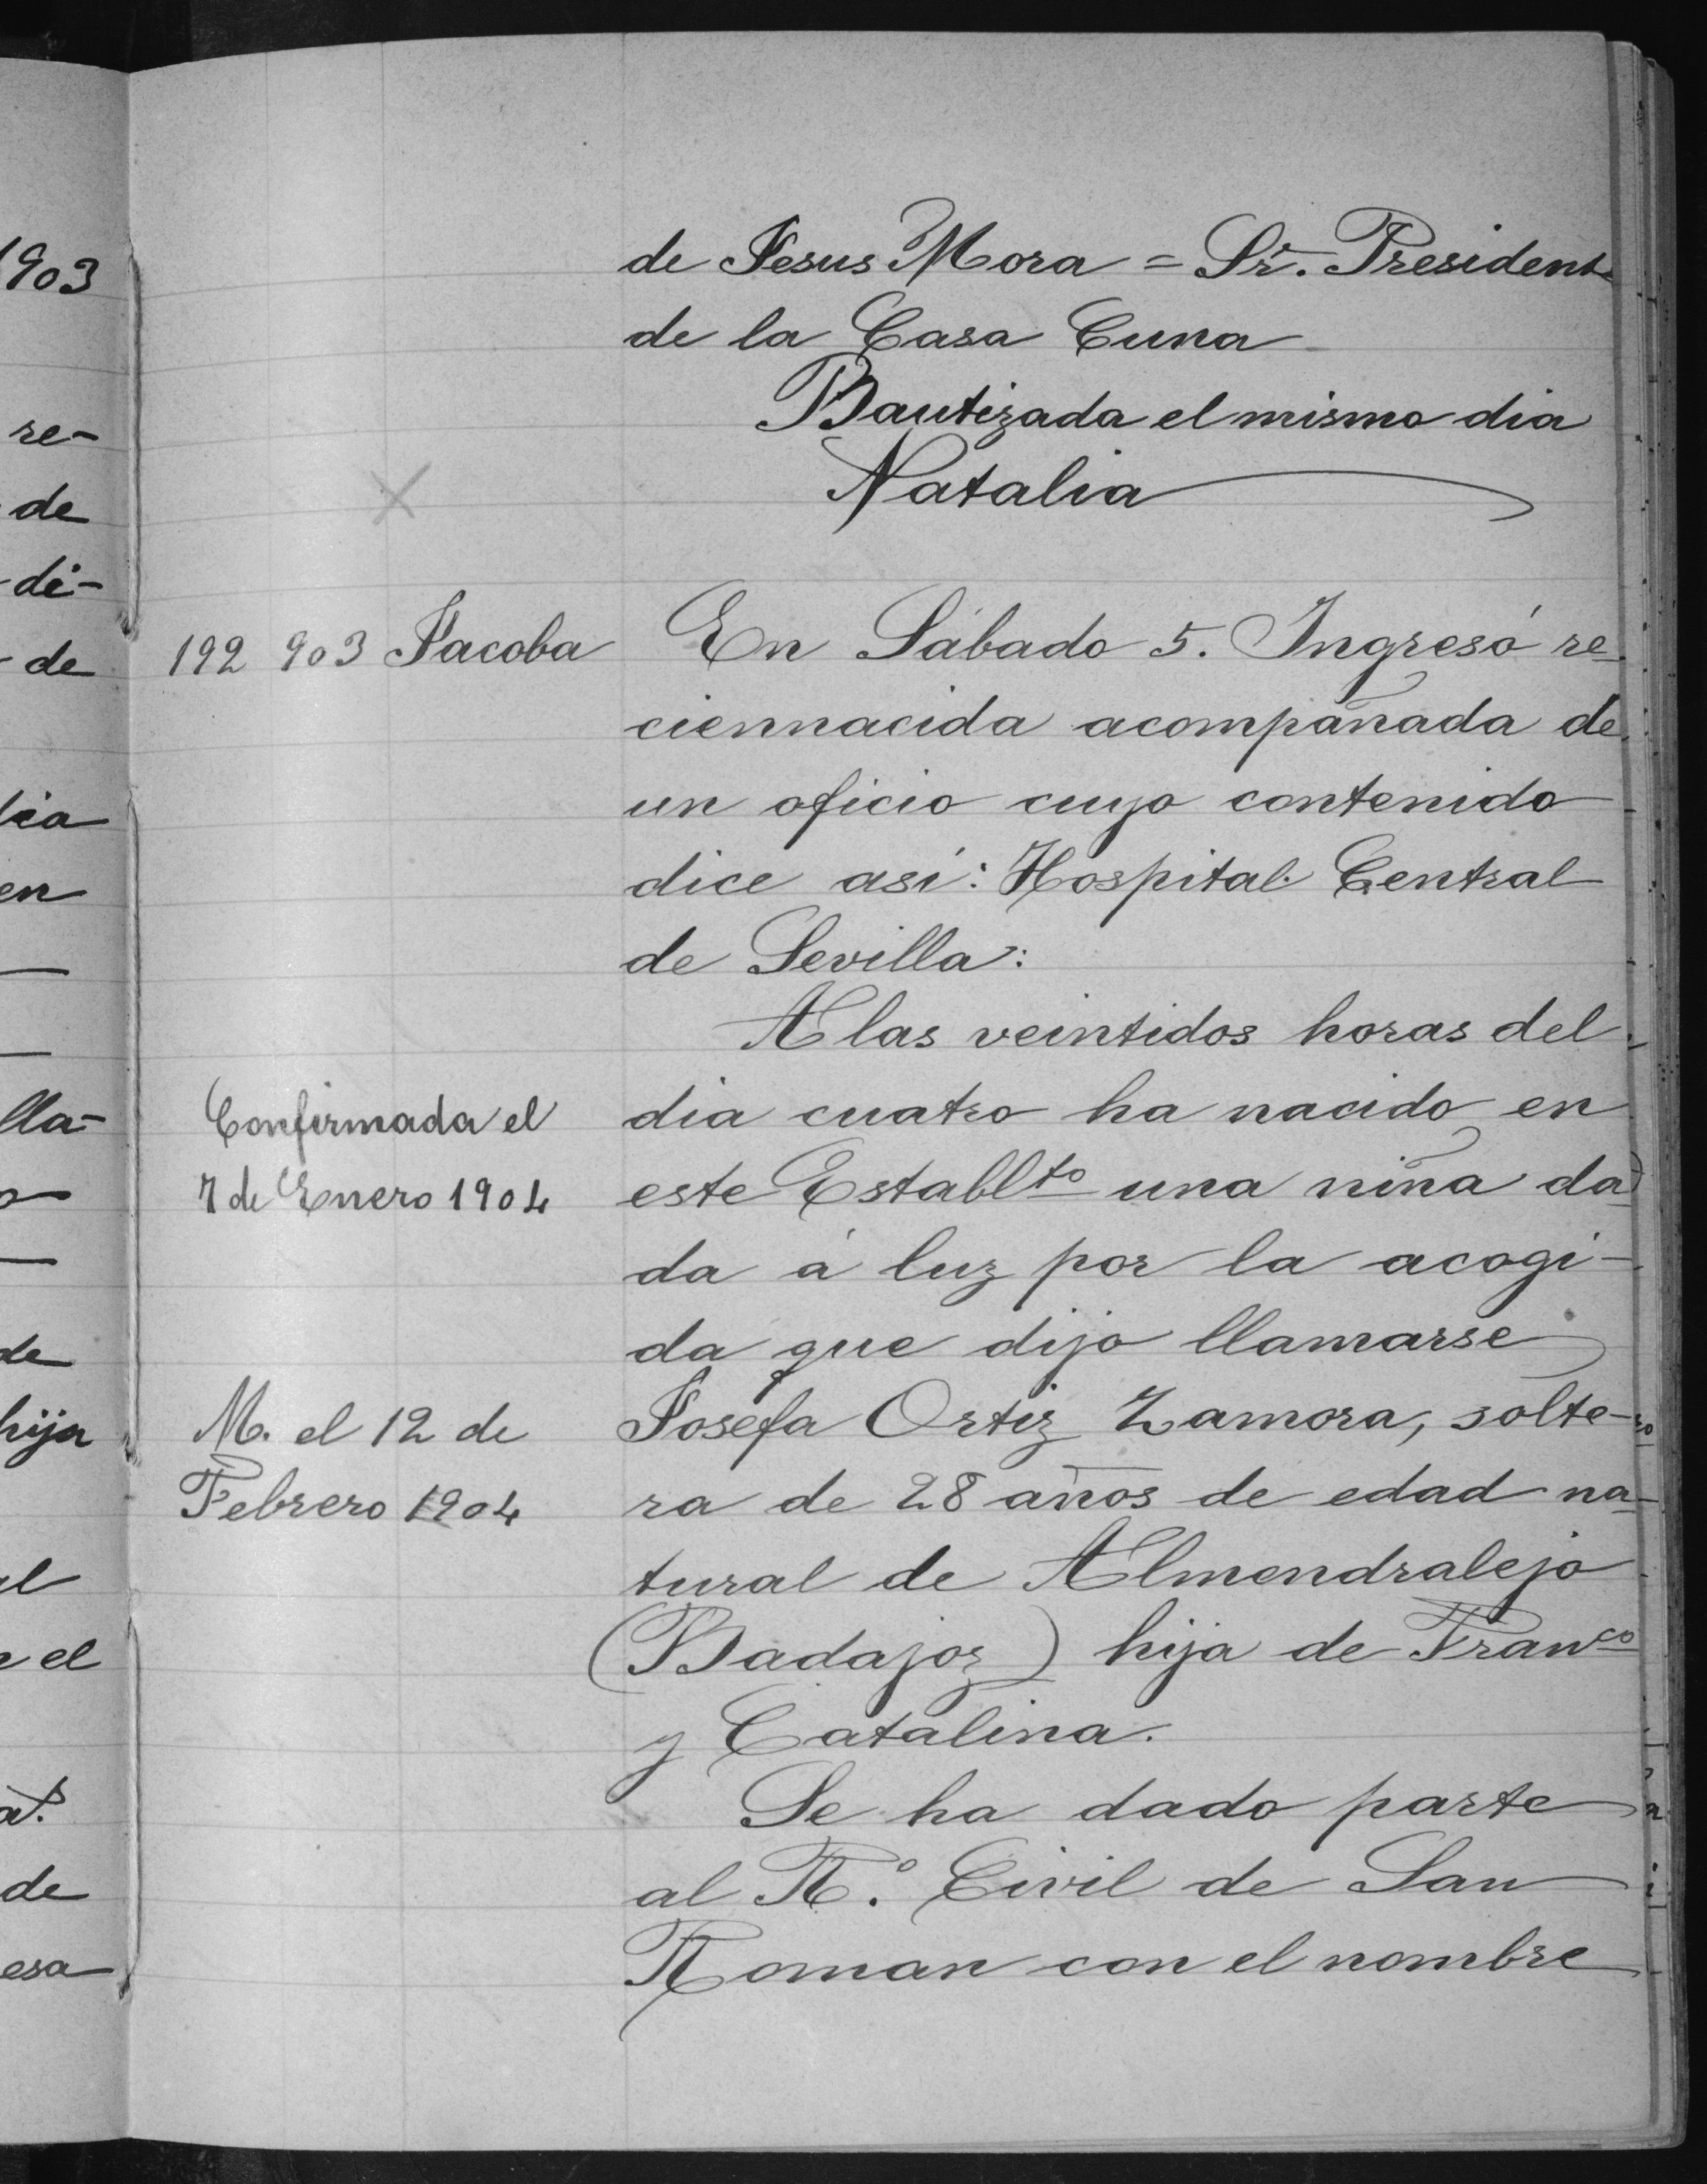 de Jesus Mora = Sr. Presidente
de la Casa Cuna
Bautizada el mismo dia
Natalia
192 903 Jacoba
En Sábado 5. Ingresó re-
ciennacida acompañada de
un oficio cuyo contenido
dice así: Hospital Central
de Sevilla:
A las veintidos horas del
dia cuatro ha nacido en
este Establto una niña da-
da á luz por la acogi-
da que dijo llamarse
Josefa Ortiz Zamora, solte-
ra de 28 años de edad na-
tural de Almendralejo
(Badajoz) hija de Franco
y Catalina.
Se ha dado parte
al R.º Civil de San
Roman con el nombre
Confirmada el
7 de Enero 1904
M. el 12 de
Febrero 1904
1903
re-
de
di-
de
en
lla-
de
hija
el
de
esa